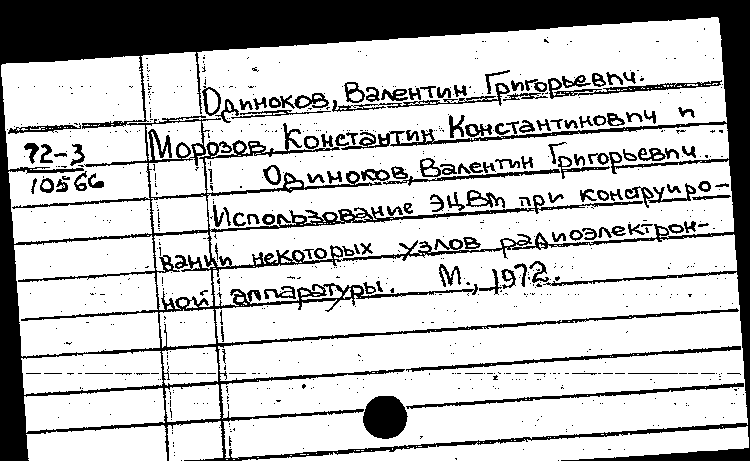 Одиноков, Валентин Григорьевич.
72-3
10566
Морозов, Константин Константинович и
Одиноков, Валентин Григорьевич.
Использование ЭЦВМ при конструиро-
вании некоторых узлов радиоэлектрон-
ной аппаратуры. М., 1972.